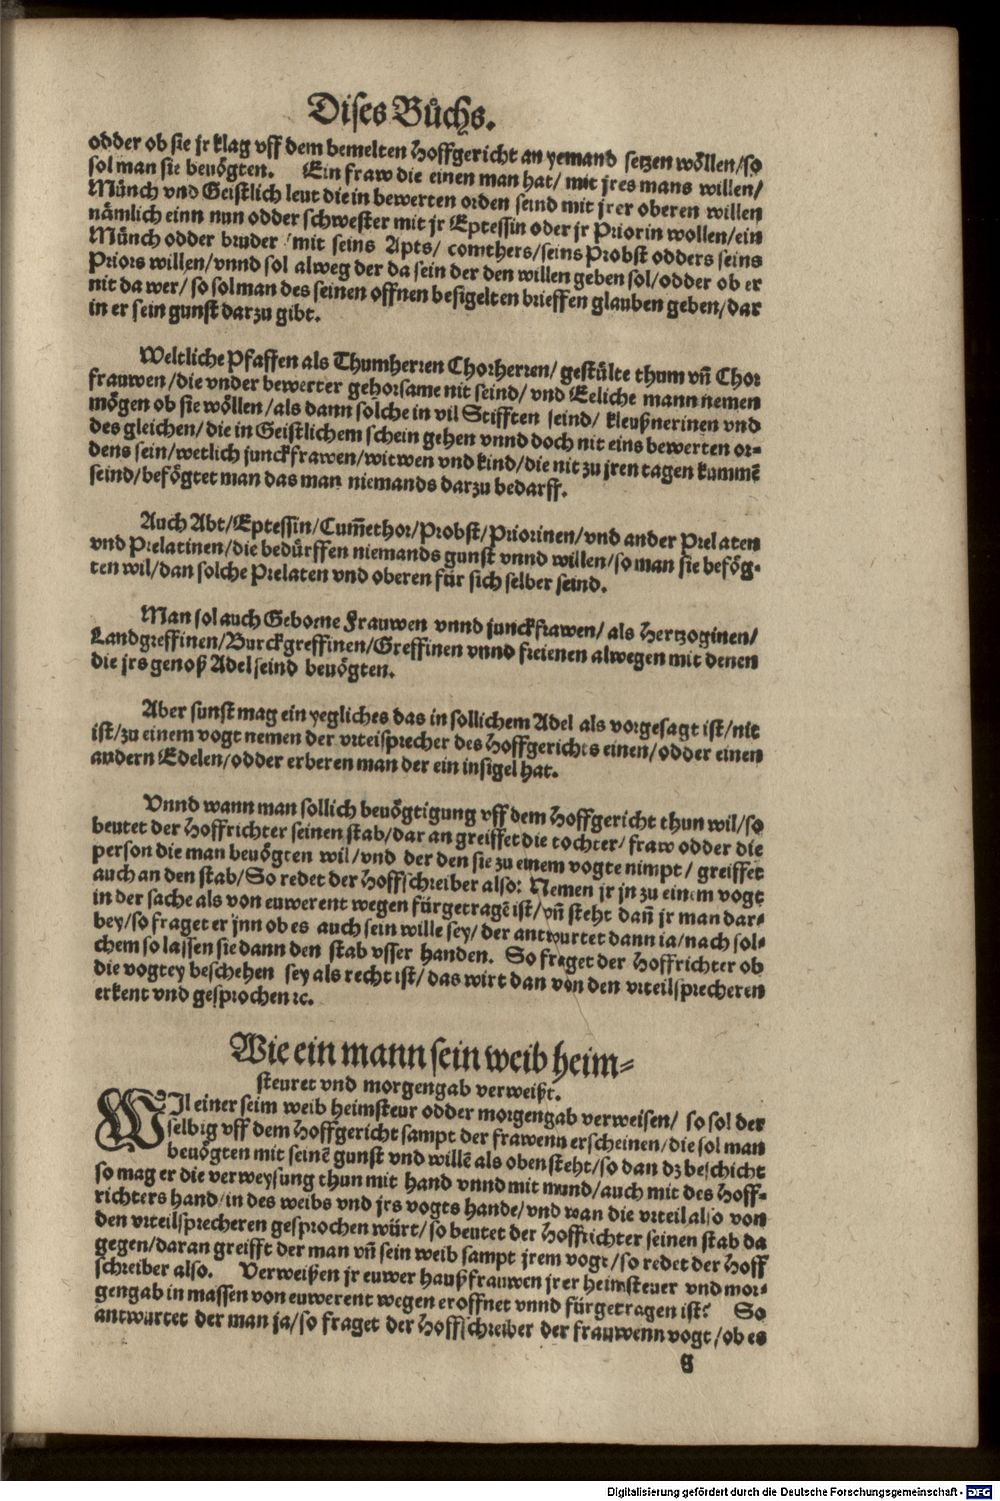 Dises Bůchs.
odder ob sie jr klag vff dem bemelten Hoffgericht an yemand setzen wöllen/so
sol man sie beuögten. Ein fraw die einen man hat/ mit jres mans willen/
Münch vnd Geistlich leut die in bewerten orden seind mit jrer oberen willen
nämlich einn nun odder schwester mit jr Eptessin oder jr Priorin wollen/ein
Münch odder bruder /mit seins Apts/ comthers/seins Probst odders seins
Priors willen/vnnd sol alweg der da sein der den willen geben sol/odder ob er
nit da wer/ so sol man des seinen offnen besigelten brieffen glauben geben/dar
in er sein gunst darzu gibt.
Weltliche Pfaffen als Thumherren Chorherren/ gestülte thum vn̄ Chor
frauwen/die vnder bewerter gehorsame nit seind/ vnd Eeliche mann nemen
mögen ob sie wöllen/als dann solche in vil Stifften seind/ kleußnerinen vnd
des gleichen/die in Geistlichem schein gehen vnnd doch nit eins bewerten or⸗
dens sein/wetlich junckfrawen/witwen vnd kind/die nit zu jren tagen kummē
seind/befögtet man das man niemands darzu bedarff.
Auch Abt/Eptessin/Cum̄ethor/Probst/Priorinen/vnd ander Prelaten
vnd Prelatinen/die bedürffen niemands gunst vnnd willen/so man sie befög⸗
ten wil/dan solche Prelaten vnd oberen für sich selber seind.
Man sol auch Geborne Frauwen vnnd junckfrawen/ als Hertzoginen/
Landgreffinen/Burckgreffinen/Greffinen vnnd freienen alwegen mit denen
die jrs genoß Adel seind beuögten.
Aber sunst mag ein yegliches das in sollichem Adel als vorgesagt ist/nit
ist/zu einem vogt nemen der vrteilsprecher des Hoffgerichts einen/odder einen
andern Edelen/odder erberen man der ein insigel hat.
Vnnd wann man sollich beuögtigung vff dem Hoffgericht thun wil/so
beutet der Hoffrichter seinen stab/dar an greiffet die tochter/ fraw odder die
person die man beuögten wil/vnd der den sie zu einem vogte nimpt/ greiffet
auch an den stab/So redet der Hoffschreiber also: Nemen jr jn zu einem vogt
in der sache als von euwerent wegen fürgetragē ist/vn̄ steht dan̄ jr man dar⸗
bey/so fraget er jnn ob es auch sein wille sey/ der antwurtet dann ia/nach sol⸗
chem so lassen sie dann den stab vsser handen. So fraget der Hoffrichter ob
die vogtey beschehen sey als recht ist/ das wirt dan von den vrteilsprecheren
erkent vnd gesprochen ꝛc.
Wie ein mann sein weib heim⸗
steuret vnd morgengab verweißt.
WIl einer seim weib heimsteur odder morgengab verweisen/ so sol der
selbig vff dem Hoffgericht sampt der frawenn erscheinen/die sol man
beuögten mit seinē gunst vnd willē als oben steht/so dan dz beschicht
so mag er die verweysung thun mit hand vnnd mit mund/auch mit des Hoff⸗
richters hand/in des weibs vnd jrs vogts hande/vnd wan die vrteil also von
den vrteilsprecheren gesprochen würt/so beutet der Hoffrichter seinen stab da
gegen/daran greifft der man vn̄ sein weib sampt jrem vogt/so redet der Hoff
schreiber also. Verweißen jr euwer haußfrauwen jrer heimsteuer vnd mor⸗
gengab in massen von euwerent wegen eroffnet vnnd fürgetragen ist? So
antwurtet der man ja/so fraget der Hoffschreiber der frauwenn vogt/ob es
G
Digitalisierung gefördert durch die Deutsche Forschungsgemeinschaft - DFG